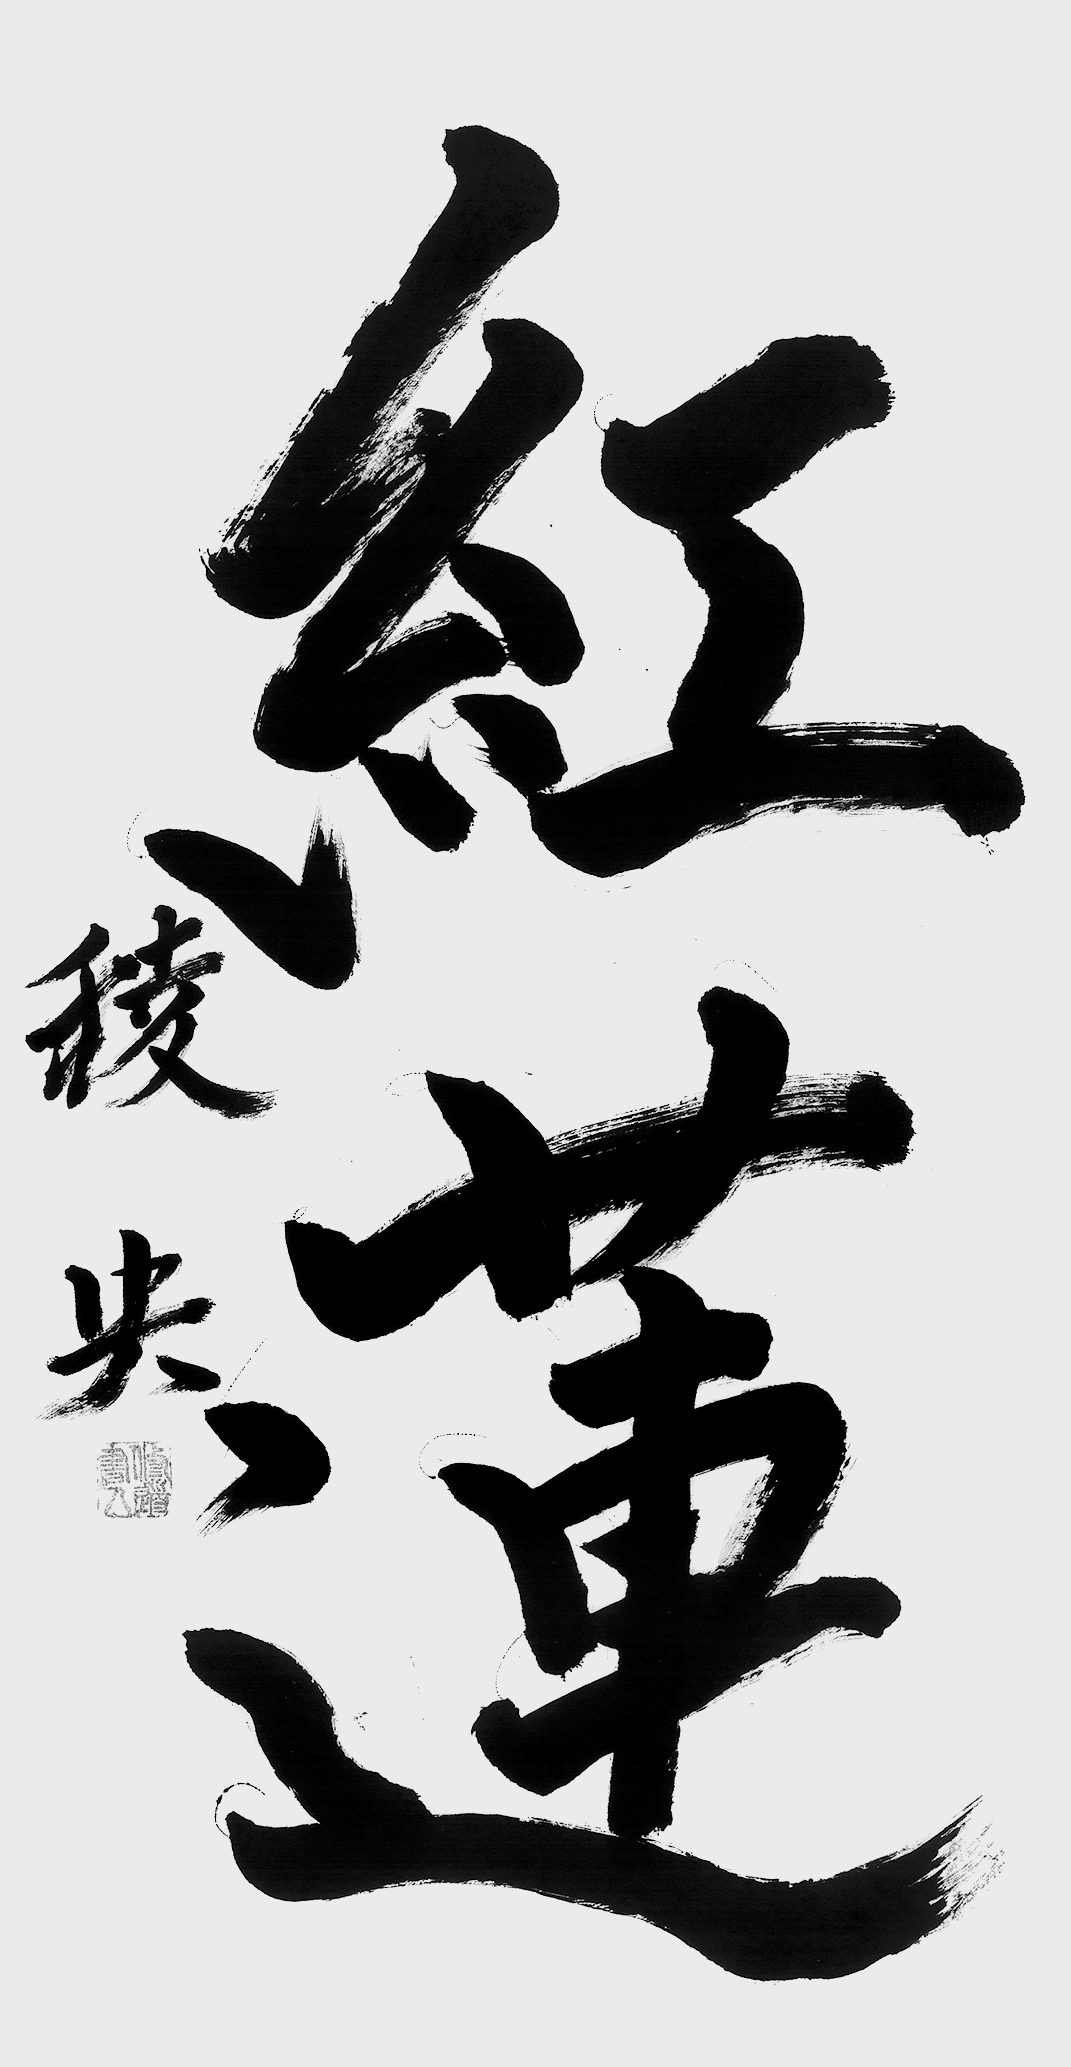 紅蓮
稜央